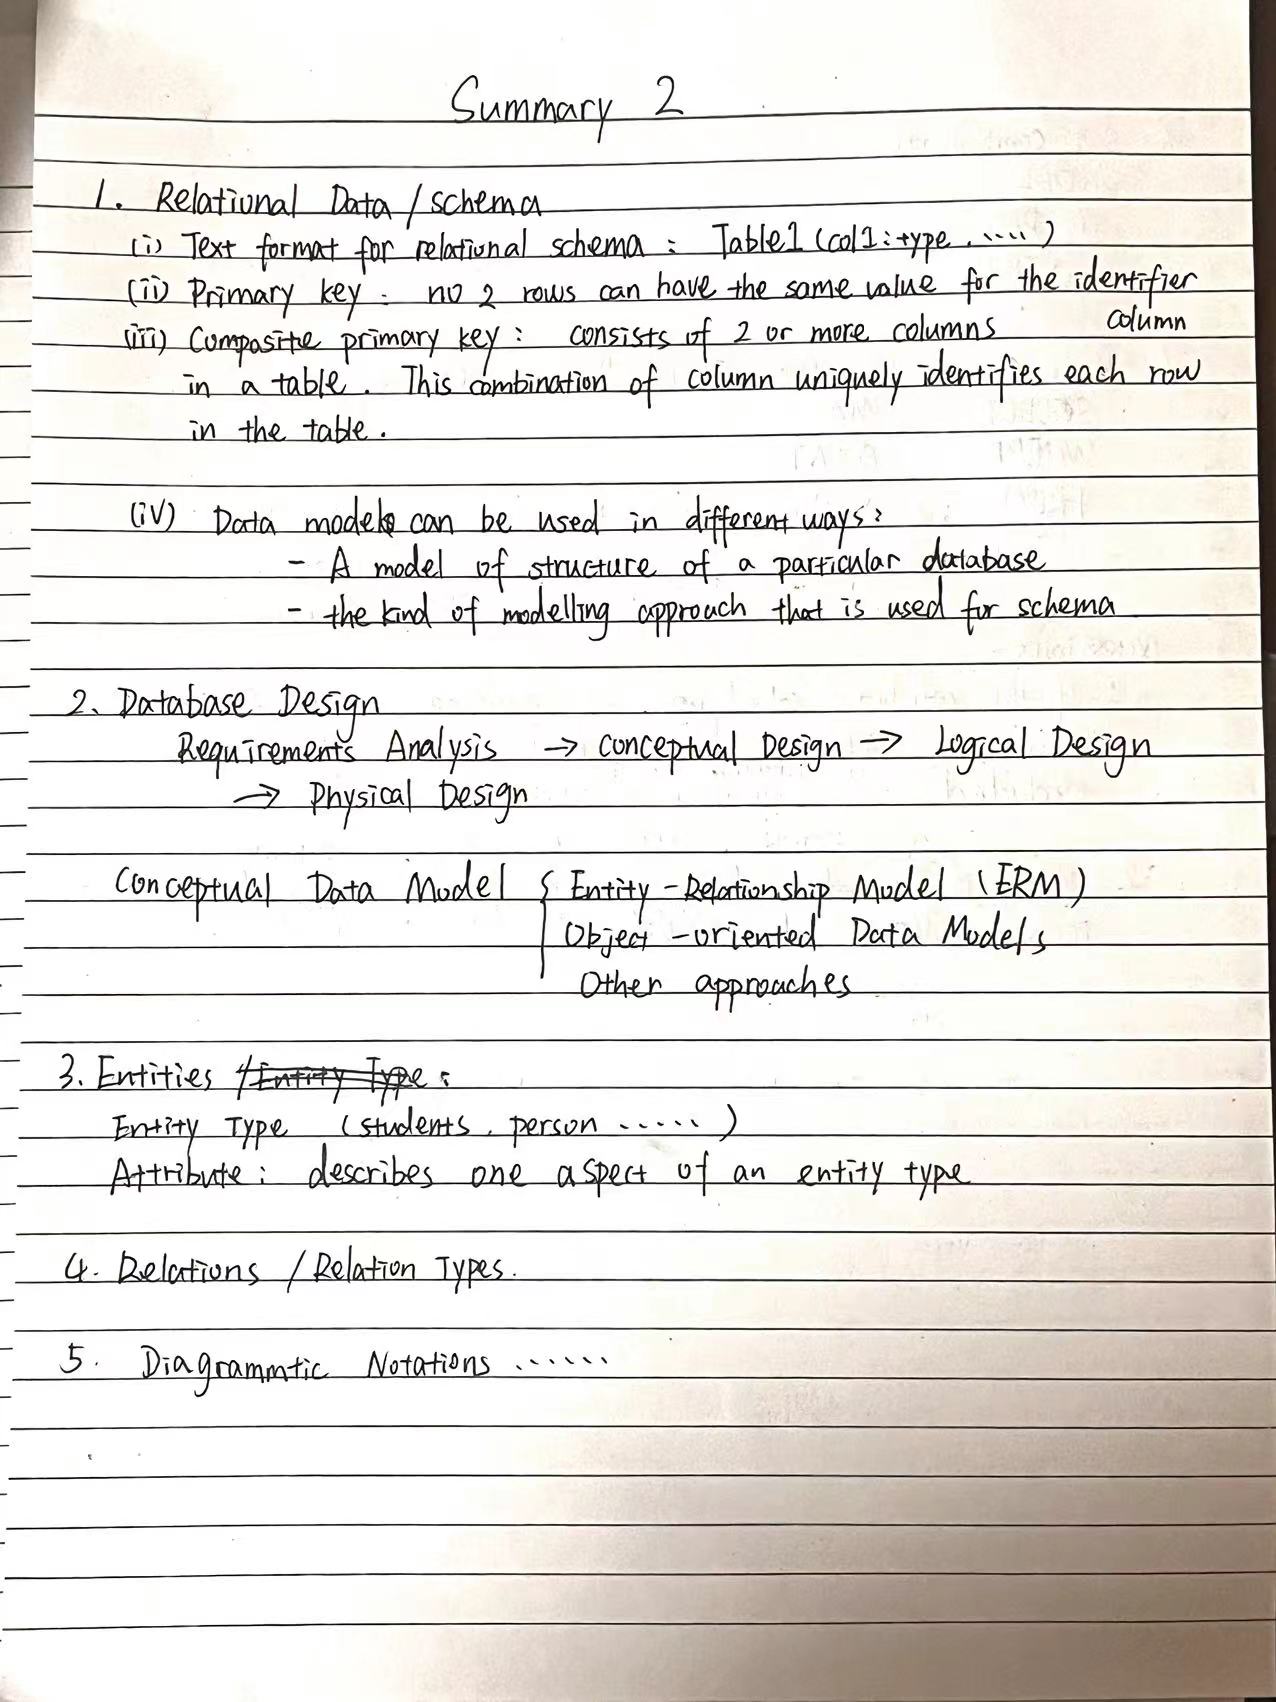 Summary 2
1. Relational Data / schema
(i) Text format for relational schema : Table1 (col1 : type , ..... )
(ii) Primary key : no 2 rows can have the same value for the identifier
column
(iii) Composite primary key : consists of 2 or more columns
in a table . This combination of column uniquely identifies each row
in the table .
(iv) Data models can be used in different ways :
- A model of structure of a particular database
- the kind of modelling approach that is used for schema
2. Database Design
Requirements Analysis → Conceptual Design → Logical Design
→ Physical Design
Conceptual Data Model { Entity - Relationship Model (ERM)
Object - oriented Data Models
Other approaches
3. Entities / Entity Type :
Entity Type (students , person ..... )
Attribute : describes one aspect of an entity type
4. Relations / Relation Types .
5. Diagrammtic Notations ......